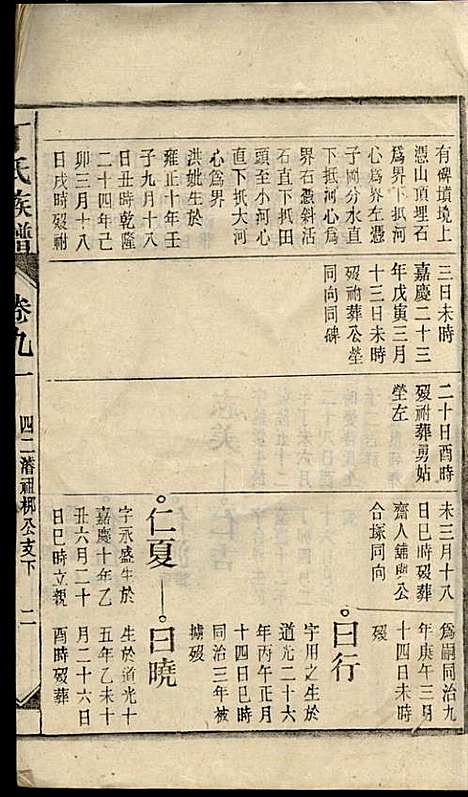 有碑墳境上
憑山頂埋石
爲界下抵河
心爲界左憑
子岡分水直
下抵河心爲
界右憑斜活
石直下抵田
頭至小河心
直下抵大河
心爲界
洪妣生於
雍正十年壬
子九月十八
日丑時乾隆
二十四年己
卯三月十八
日戌時歿祔
三日未時
嘉慶二十三
年戊寅三月
十三日未時
歿祔葬公塋
同向同碑
二十日酉時
歿祔葬勇姑
塋左
未三月十八
日巳時歿葬
齋人鋪與公
合塚同向
仁夏
字永盛生於
嘉慶十年乙
丑六月二十
日巳時立親
爲嗣同治九
年庚午三月
十四日未時
歿
曰行
字用之生於
道光二十六
年丙午正月
十四日巳時
同治三年被
擄歿
曰曉
生於道光十
五年乙未十
月二十六日
酉時歿葬
丁氏族譜
卷九
四二濳祖梆公支下
二